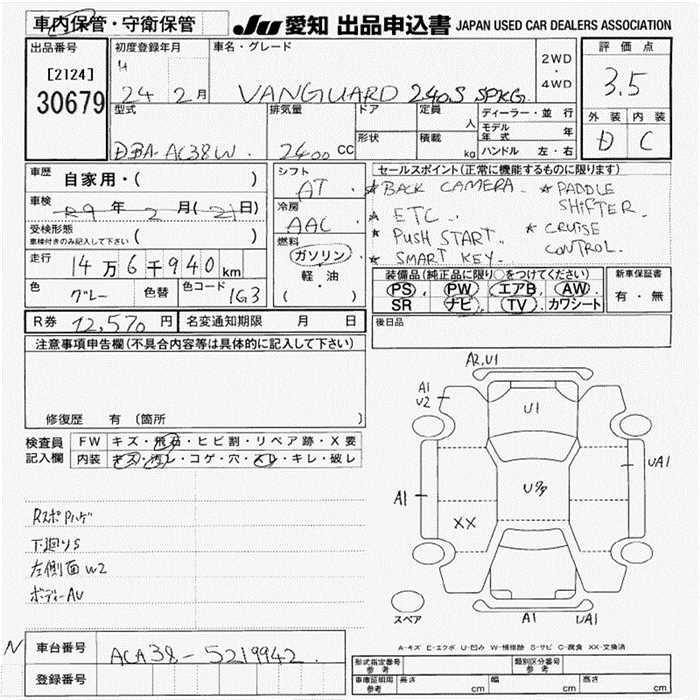 車内保管・守衛保管
JU 愛知 出品申込書 JAPAN USED CAR DEALERS ASSOCIATION
出品番号
[2124]
30679
初度登録年月
H
24 2月
車名・グレード
VANGUARD 240S SPKG
2WD
・
4WD
評価点
3.5
外装 内装
D C
型式
DBA-ACA38W
排気量
2400 CC
ドア
形状
定員
人
積載
kg
ディーラー・並行
モデル年式 年
ハンドル 左・右
車歴
自家用・( )
車検
R9 年 2 月 (21日)
受検形態
車検付きのみ記入して下さい ( )
走行
14万6千940km
色
グレー
色替
色コード
1G3
R券 12,570円
名変通知期限 月 日
シフト
AT
冷房
AAC
燃料
ガソリン
軽・油
( )
セールスポイント(正常に機能するものに限ります)
★BACK CAMERA. ★PADDLE SHIFTER.
★ETC.. ★CRUISE CONTROL.
★PUSH START..
★SMART KEY.
装備品(純正品に限り○をつけてください)
PS PW エアB AW
SR ナビ TV カワシート
新車保証書
有・無
後日品
注意事項申告欄(不具合内容等は具体的に記入して下さい)
修復歴 有 (箇所 )
検査員記入欄
FW キズ・飛石・ヒビ割・リペア跡・X要
内装 キズ・汚レ・コゲ・穴・スレ・キレ・破レ
RスポPハゲ
下廻りS
左側面W2
ボディーAU
A2,U1
A1
U2
U1
A1
UA1
XX
A1
UA1
スペア
A-キズ E-エクボ U-凹み W-補修跡 S-サビ C-腐食 XX-交換済
N
車台番号 ACA38-5219942
登録番号
形式指定番号
参考
類別区分番号
参考
車庫証明用
参考
長さ cm
幅 cm
高さ cm